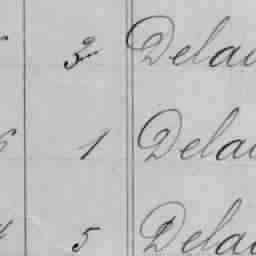 3 Dela
6 1 Dela
5 Dela